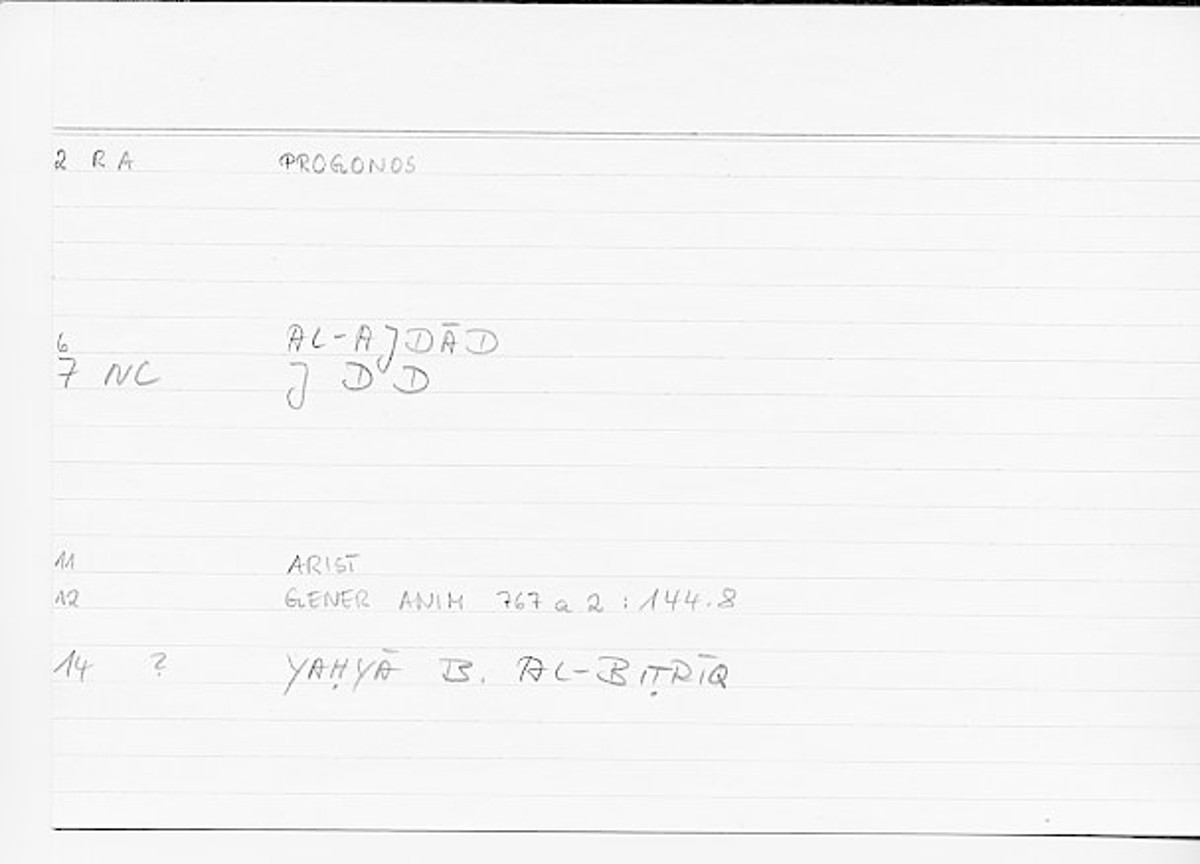 2 R A PROGONOS
6 AL-AJDĀD
7 NC J D D
11 ARIST
12 GENER ANIM 767 a 2 : 144.8
14 ? YAḤYĀ B. AL-BIṬRĪQ